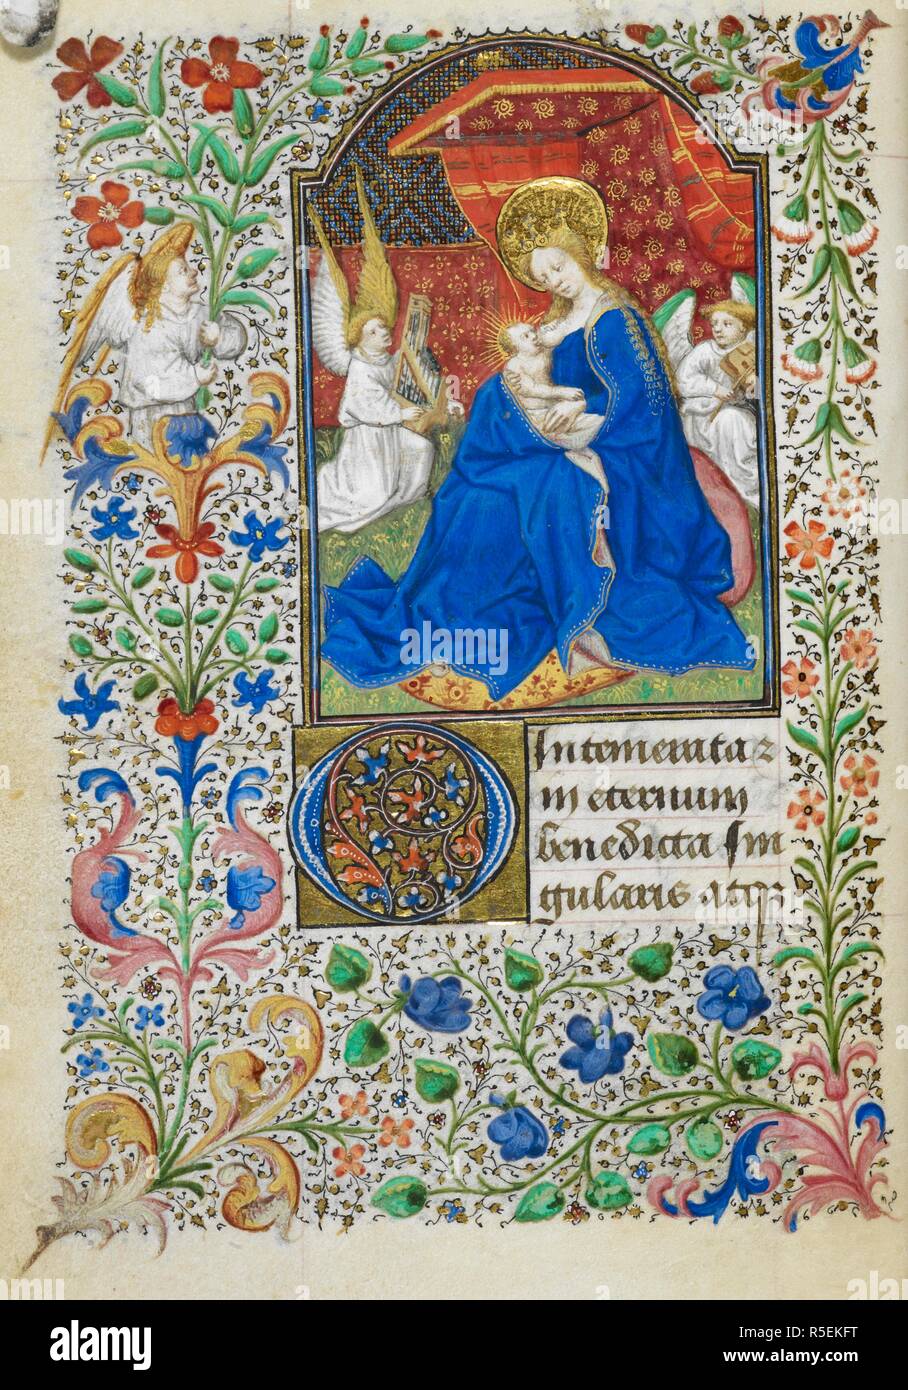 O
Intemerata z
in eternum
benedicta sin
gularis atqȝ
alamy
Image ID: R5EKFT
www.alamy.com